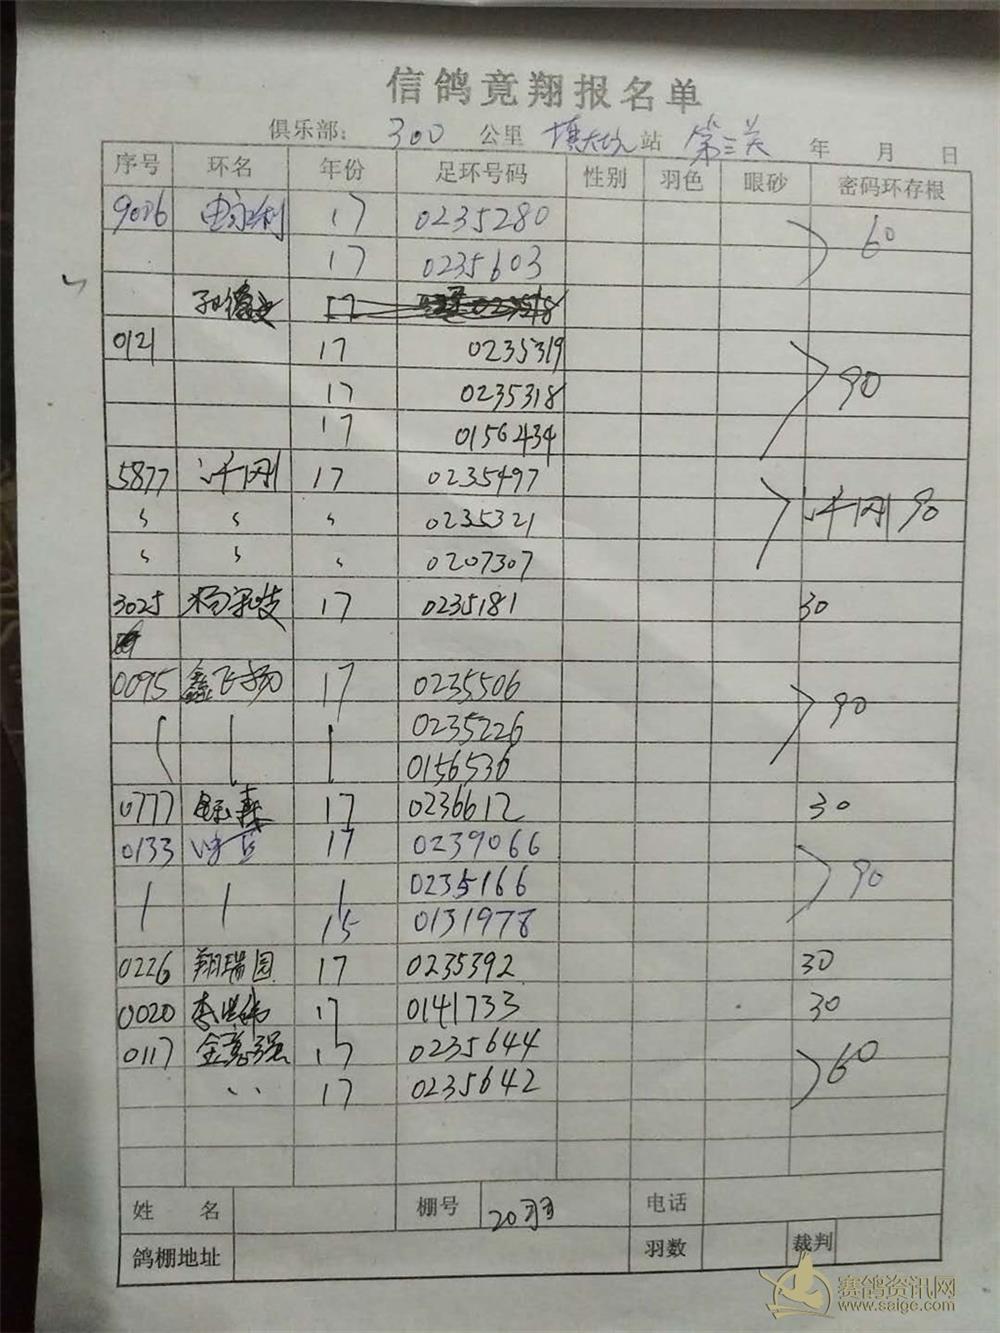 信鸽竞翔报名单
俱乐部: 300 公里 站 第三关 年 月 日
序号 环名 年份 足环号码 性别 羽色 眼砂 密码环存根
9006 17 0235280 60
17 0235603
17
0121 17 0235319 90
17 0235318
17 0156434
5877 许刚 17 0235497 许刚 90
〃 〃 〃 0235321
〃 〃 〃 0207307
3025 17 0235181 30
0095 鑫飞扬 17 0235506 90
0235226
0156536
0777 17 0236612 30
0133 17 0239066 90
0235166
15 0131978
0226 翔瑞园 17 0235392 30
0020 17 0141733 30
0117 17 0235644 60
〃 17 0235642
姓 名 棚号 20羽 电话
鸽棚地址 羽数 裁判
赛鸽资讯网
www.saige.com